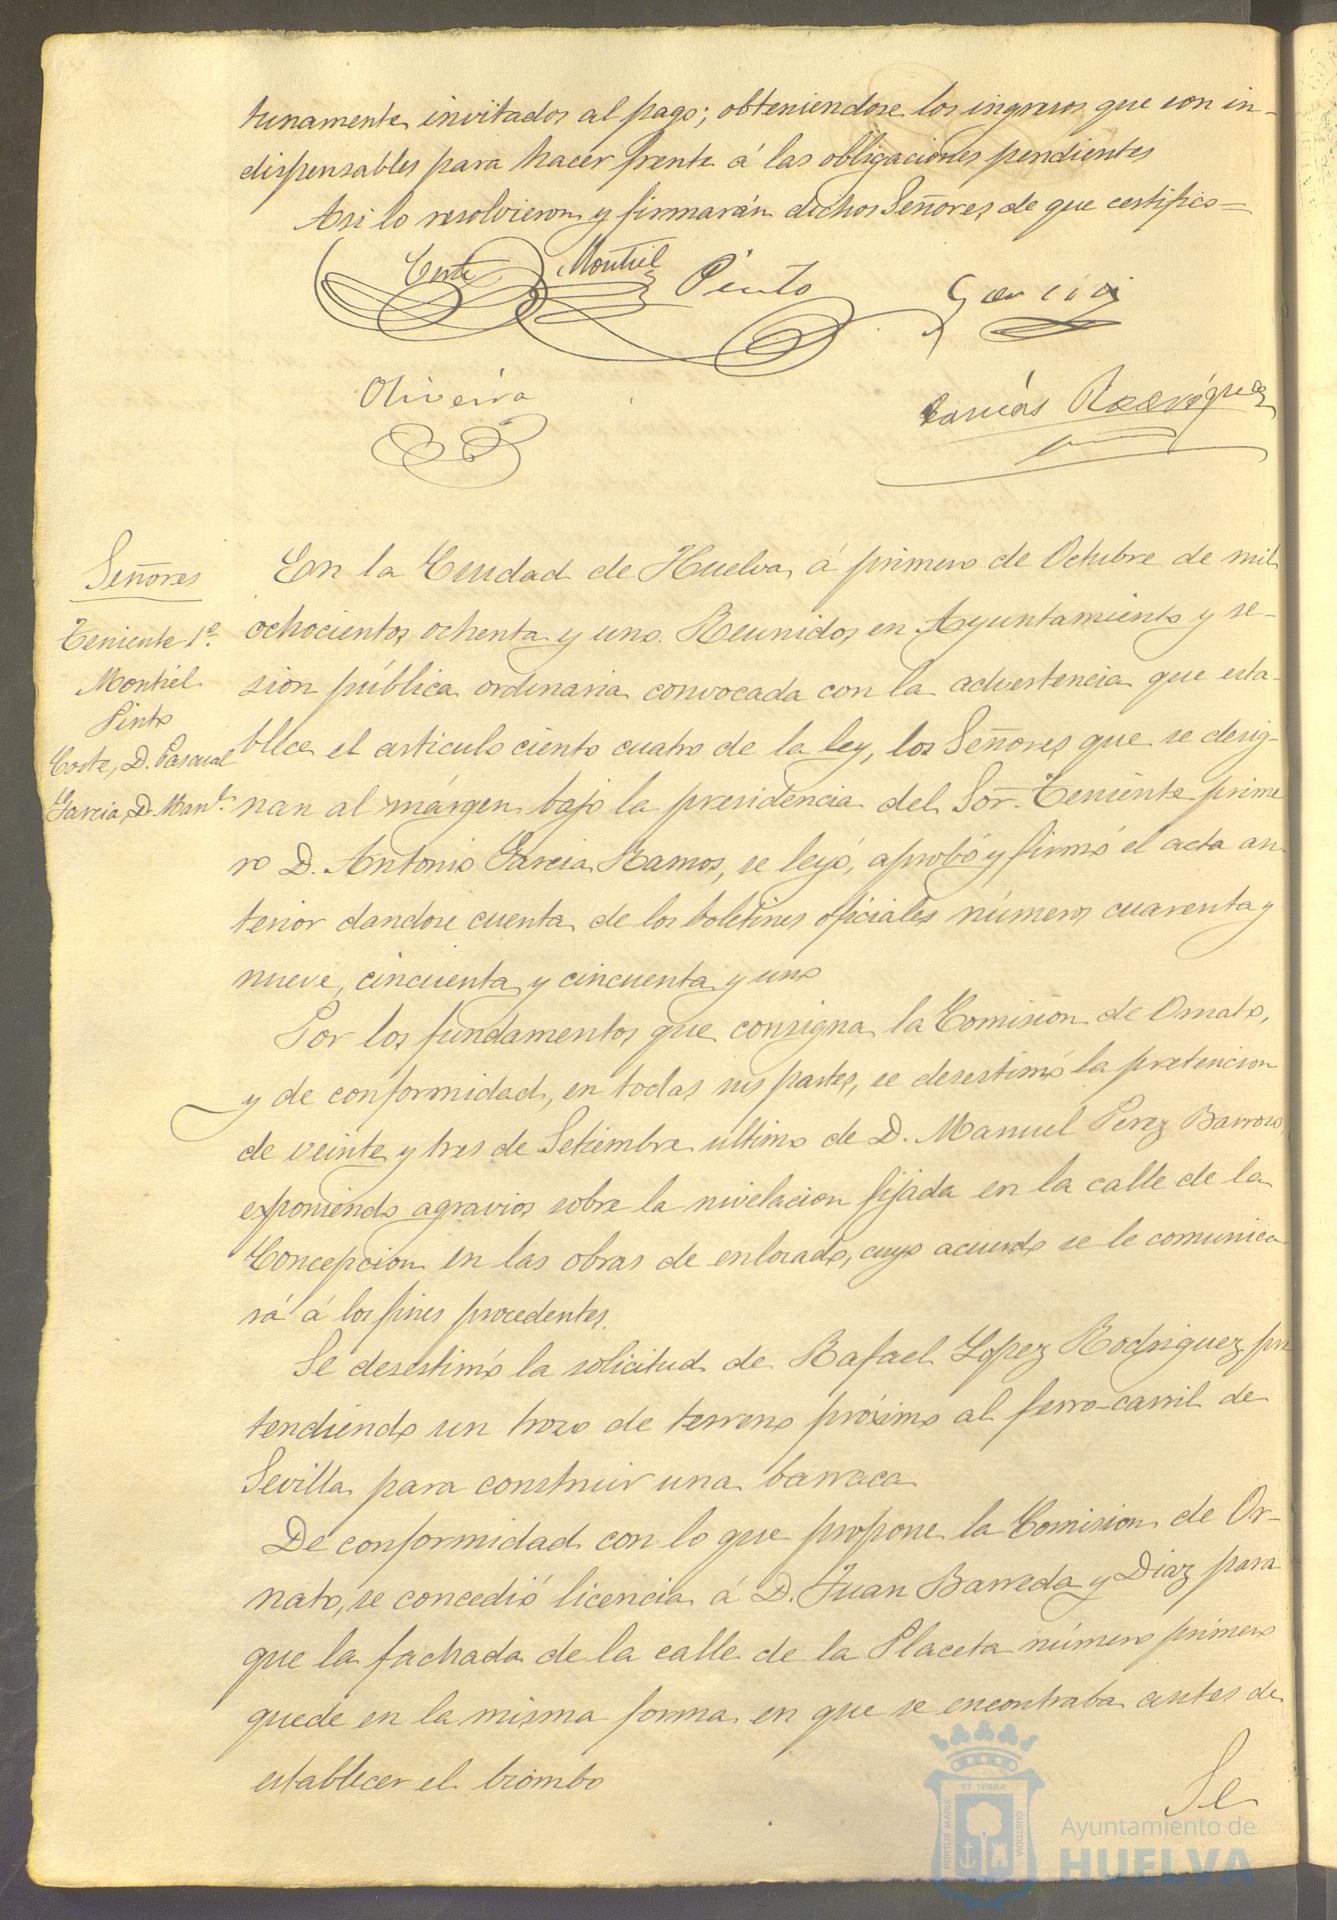 tunamente invitados al pago; obteniendose los ingresos que son in-
dispensables para hacer frente á las obligaciones pendientes
Asi lo resolvieron y firmarán dichos Señores de que certifico=
Corte Montiel Pinto Garcia
Oliveira Rodriguez
Señores
Teniente 1º
Montiel
Pinto
Corte, D. Pascual
Garcia, D. Manl.
En la Ciudad de Huelva á primero de Octubre de mil
ochocientos ochenta y uno. Reunidos en Ayuntamiento y se-
sion pública ordinaria convocada con la advertencia que esta-
blece el articulo ciento cuatro de la ley, los Señores que se desig-
nan al márgen bajo la presidencia del Sor. Teniente prime
ro D. Antonio Garcia Ramos, se leyó, aprobó y firmó el acta an-
terior dandose cuenta de los boletines oficiales números cuarenta y
nueve, cincuenta y cincuenta y uno
Por los fundamentos que consigna la Comision de Ornato,
y de conformidad, en todas sus partes, se desestimó la pretencion
de veinte y tres de Setiembre ultimo de D. Manuel Perez Barroso,
exponiendo agravios sobre la nivelacion fijada en la calle de la
Concepcion en las obras de enlosado, cuyo acuerdo se le comunica
rá á los fines procedentes.
Se desestimó la solicitud de Rafael Lopez Rodriguez pre
tendiendo un trozo de terreno próximo al ferro-carril de
Sevilla para construir una barraca
De conformidad con lo que propone la Comision de Or-
nato, se concedió licencia á D. Juan Barreda y Diaz para
que la fachada de la calle de la Placeta número primero
quede en la misma forma en que se encontraba antes de
establecer el biombo
Se
PORTUS MARIS ET TERRÆ CUSTODIA
Ayuntamiento de
HUELVA